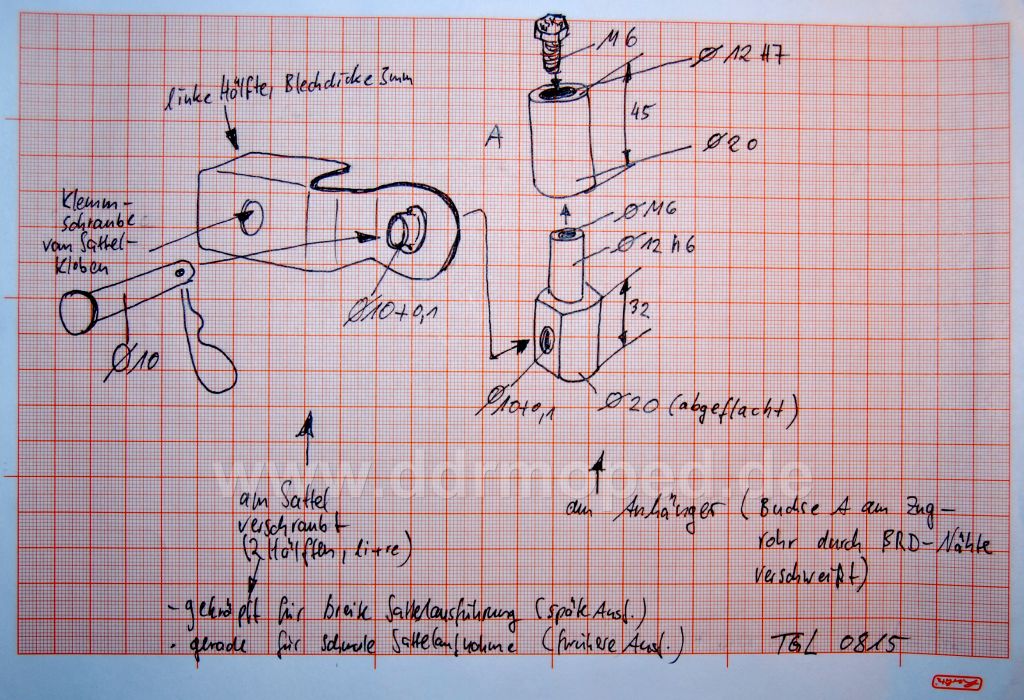 SKS
M6
Ø 12 H7
linke Hälfte, Blechdicke 3mm
45
A
Ø20
Klemm-
schraube
vom Sattel-
kloben
ØM6
Ø12 h6
32
Ø10+0,1
Ø10
Ø10+0,1
Ø20 (abgeflacht)
www.ddrmoped.de
am Sattel
verschraubt
(2 Hälften, li+re)
am Anhänger (Buchse A am Zug-
rohr durch BRD-Nähte
verschweißt)
- gekröpft für breite Sattelausführung (späte Ausf.)
- gerade für schmale Sattelaufnahme (frühere Ausf.)
TGL 0815
herlitz